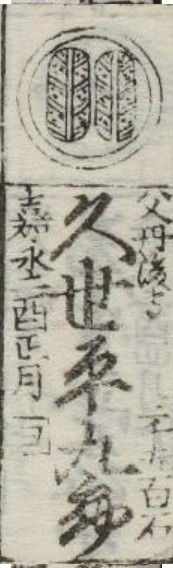 父丹後守 百石
久世平九郎
嘉永二酉正月